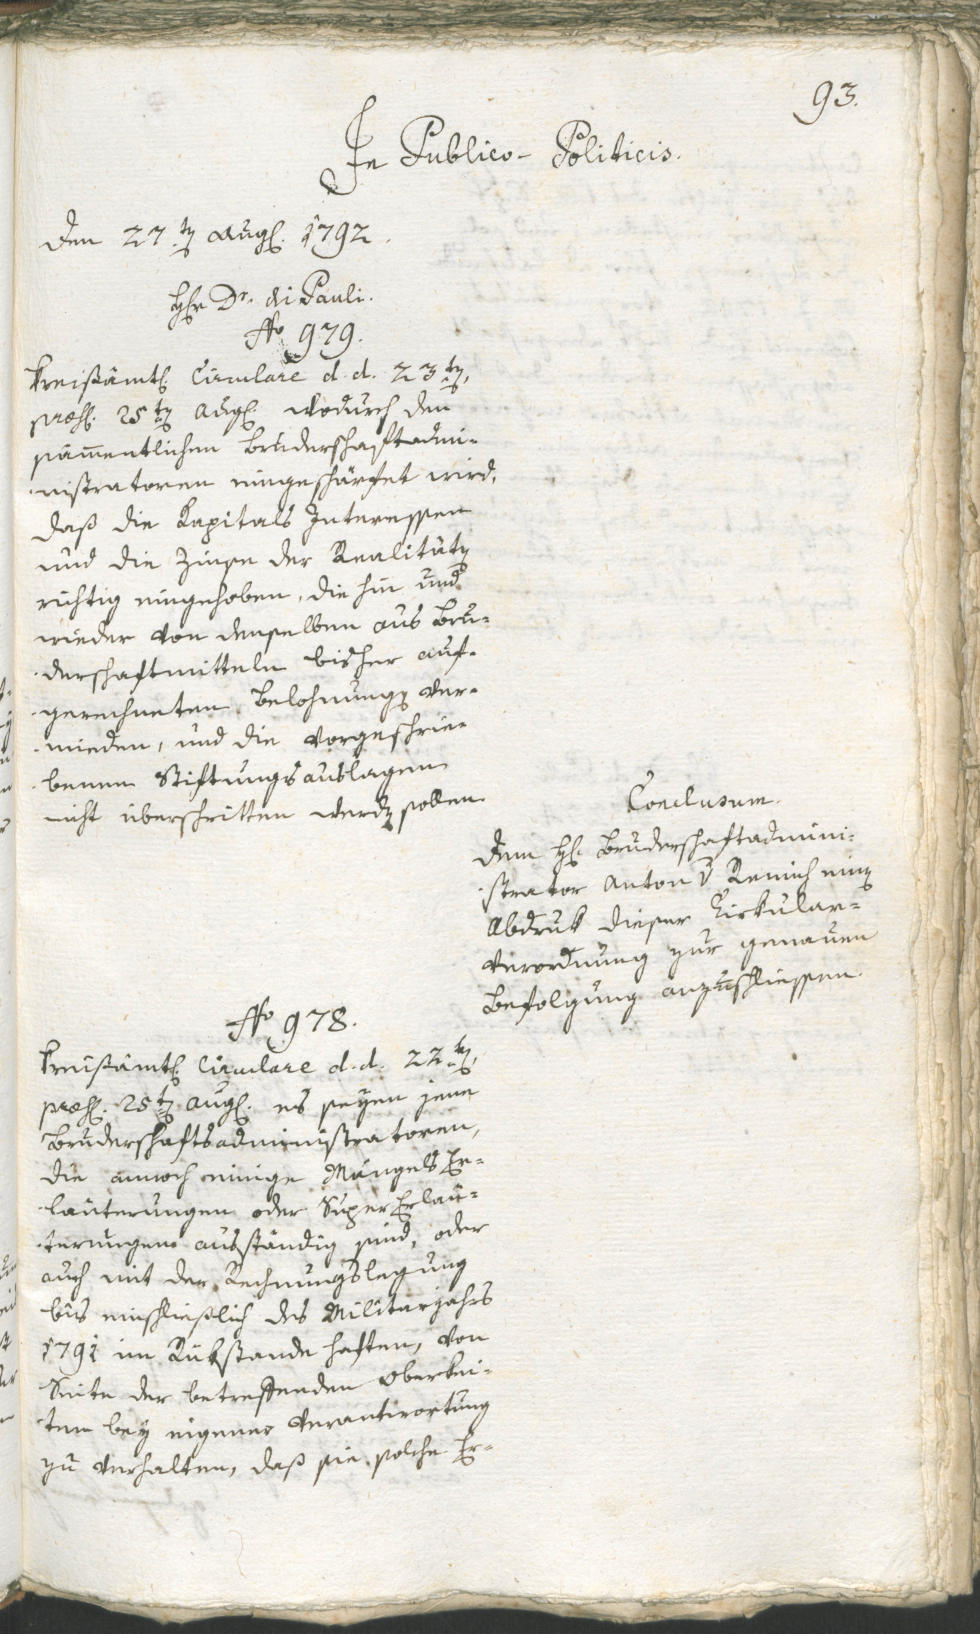 93.
In Publico-Politicis.
Den 27ten Augl. 1792.
Hhr Dr. di Pauli.
No 979.
Kreisämtl. Circulare d. d. 23ten,
praes. 25ten Augl. wodurch den
sämentlichen Bruderschaftadmi-
nistratoren eingeschärfet wird,
daß die Kapitals Interessen
und die Zinse der Realitäten
richtig eingehoben, die hin und
wieder von denselben aus Bru-
derschaftmitteln bisher auf-
gerechneten Belohnungen ver-
mieden, und die vorgeschrie-
benen Stiftungsauslagen
nicht überschritten werden sollen.
Conclusum.
Dem H. Bruderschaftadmini-
strator Anton v Remich einen
Abdruk dieser Cirkular-
verordnung zur genauen
Befolgung anzuschliessen.
No 978.
Kreisämtl. Circulare d. d. 22ten,
praes. 25ten Augl. es seyen jene
Bruderschaftsadministratoren,
die annoch einige Mängels Er-
läuterungen oder Super Erläu-
terungen ausständig sind, oder
auch mit der Rechnungslegung
bis einschließlich des Militarjahrs
1791 im Rükstande haften, von
Seite der betreffenden Obrkei-
ten bey eigener Verantwortung
zu verhalten, daß sie solche Er-